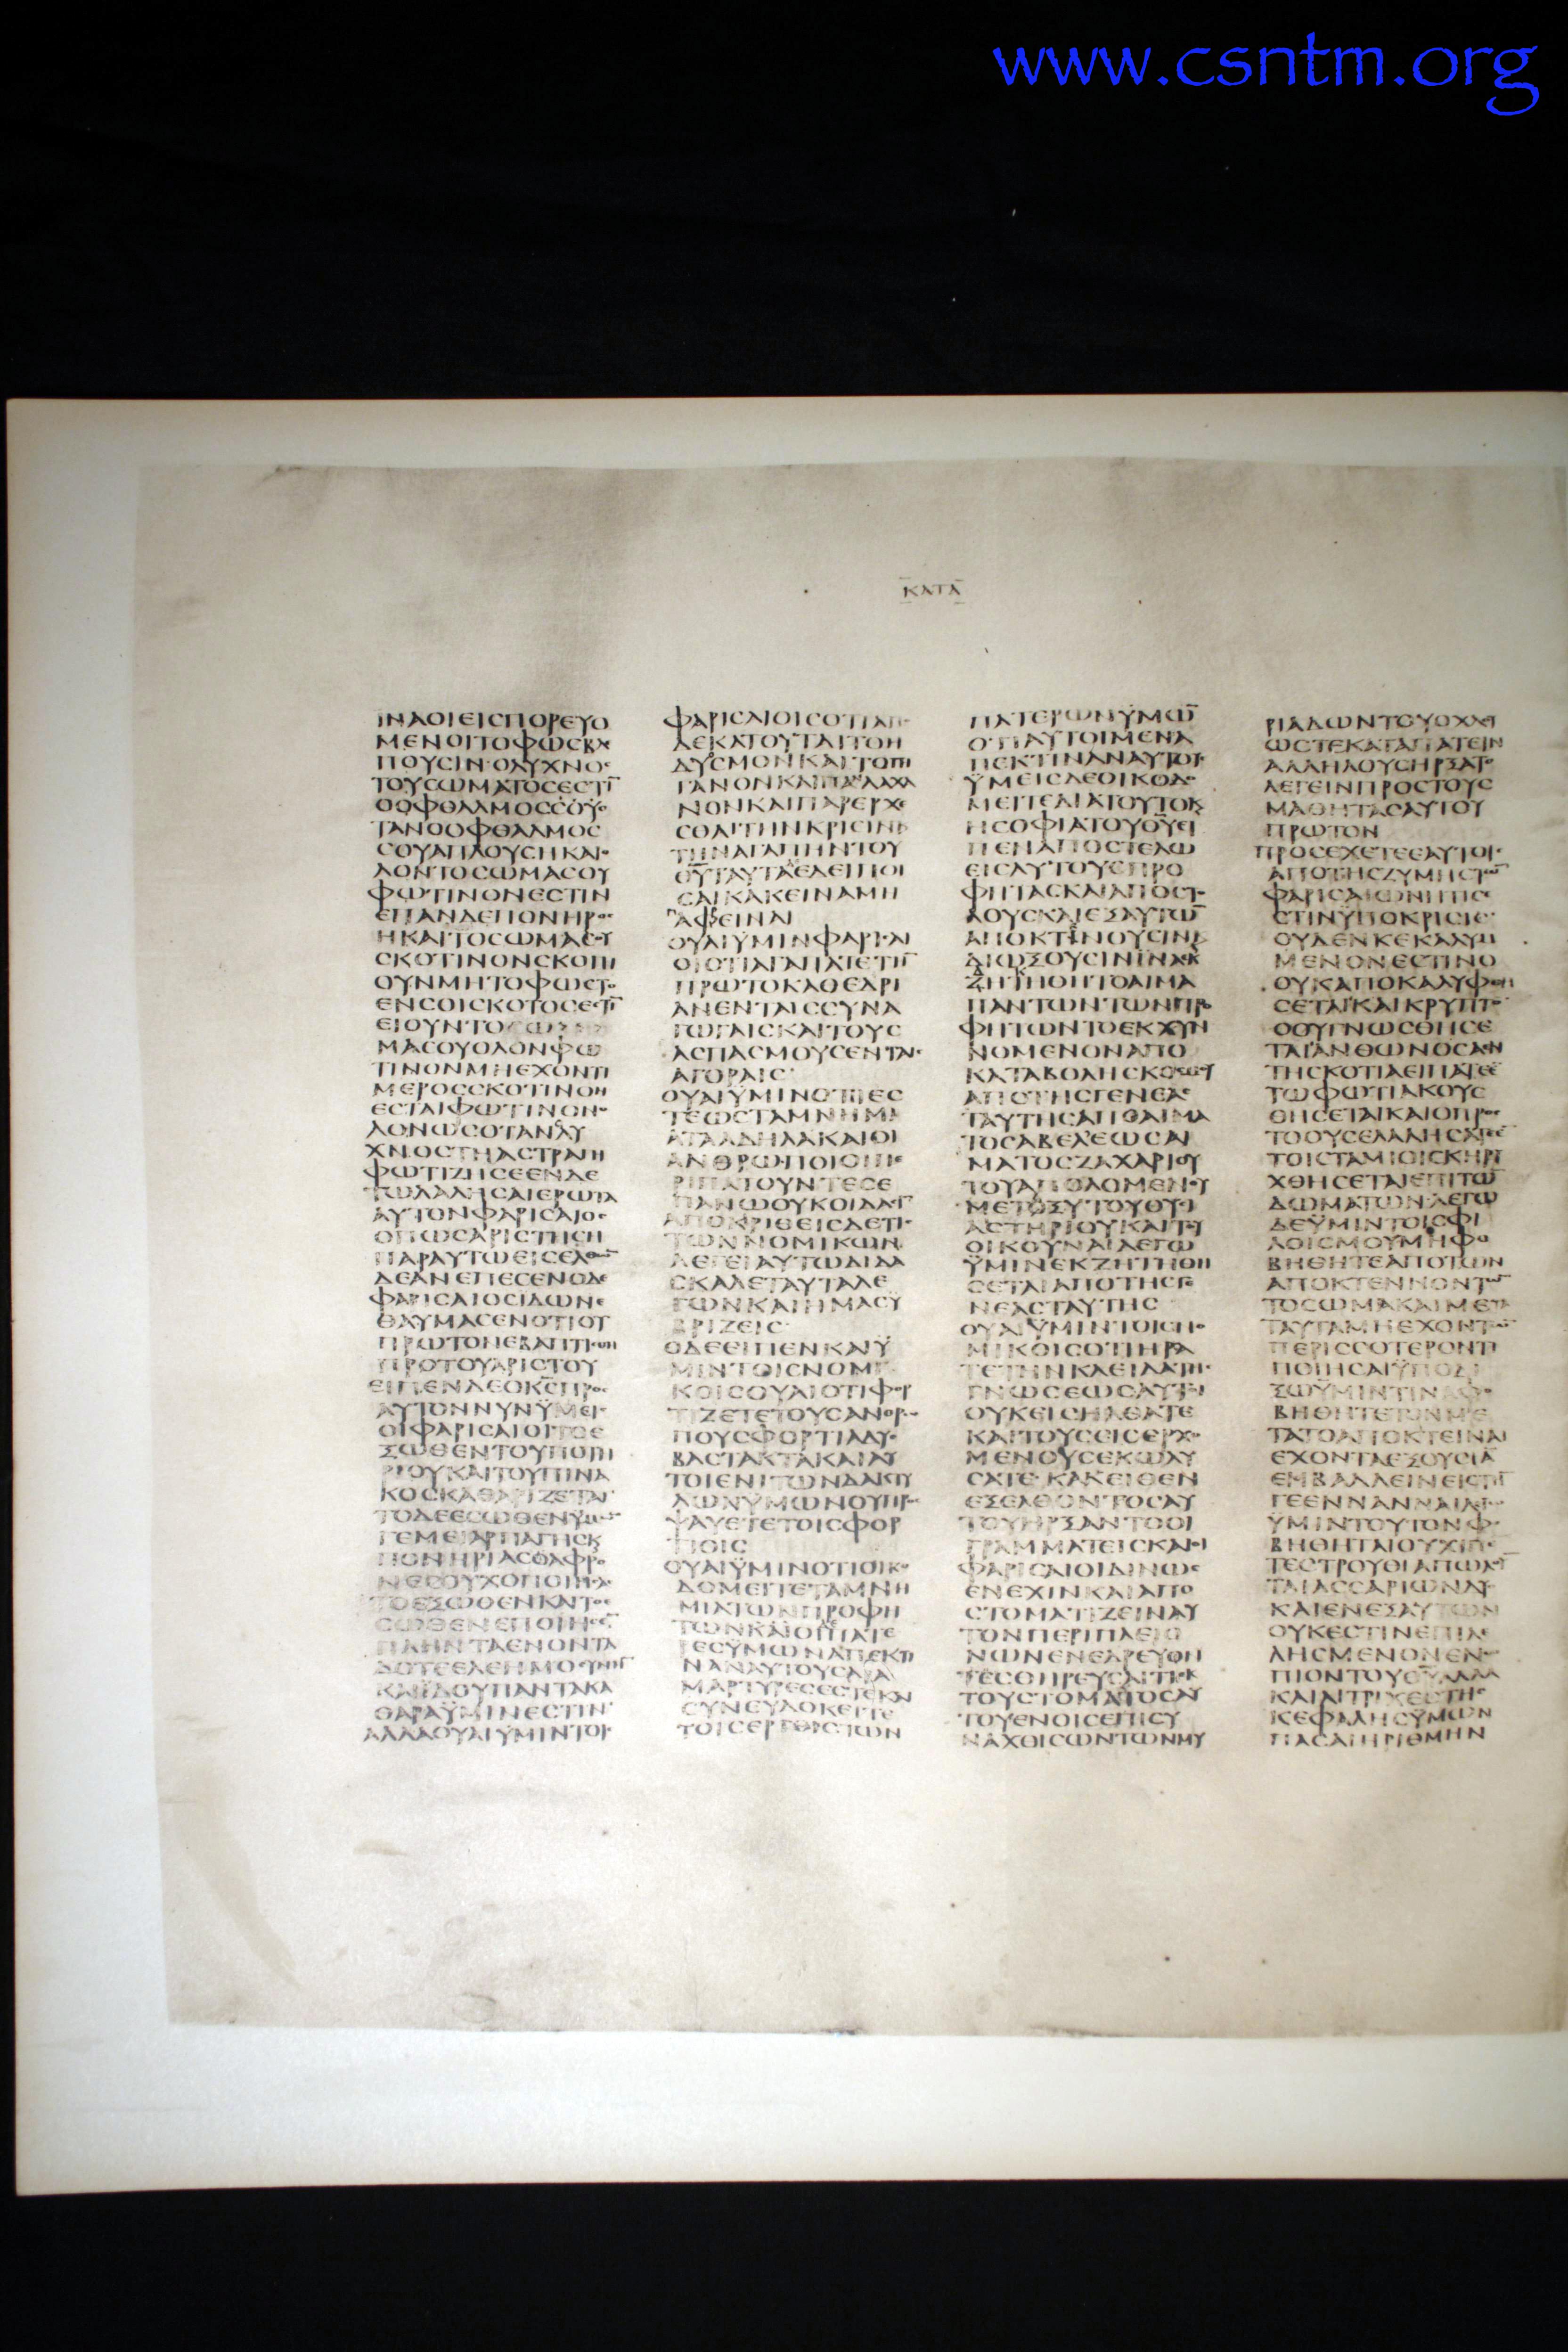 www.csntm.org
ΚΑΤΑ
ΙΝΑΟΙΕΙCΠΟΡΕΥΟ
ΜΕΝΟΙΤΟΦΩCΒΛΕ
ΠΟΥCΙΝ·ΟΛΥΧΝΟC
ΤΟΥCΩΜΑΤΟCΕCΤΙ̅
ΟΟΦΘΑΛΜΟCCΟΥΟ
ΤΑΝΟΟΦΘΑΛΜΟC
CΟΥΑΠΛΟΥCΗΚΑΙΟ
ΛΟΝΤΟCΩΜΑCΟΥ
ΦΩΤΙΝΟΝΕCΤΙΝ
ΕΠΑΝΔΕΠΟΝΗΡΟC
ΗΚΑΙΤΟCΩΜΑCΟΥ
CΚΟΤΙΝΟΝCΚΟΠΙ
ΟΥΝΜΗΤΟΦΩCΤΟ
ΕΝCΟΙCΚΟΤΟCΕCΤΙ̅
ΕΙΟΥΝΤΟCΩ
ΜΑCΟΥΟΛΟΝΦΩ
ΤΙΝΟΝΜΗΕΧΟΝΤΙ
ΜΕΡΟCCΚΟΤΙΝΟΝ
ΕCΤΑΙΦΩΤΙΝΟΝΟ
ΛΟΝΩCΟΤΑΝΟΛΥ
ΧΝΟCΤΗΑCΤΡΑΠΗ
ΦΩΤΙΖΗCΕΕΝΔΕ
ΤΩΛΑΛΗCΑΙΕΡΩΤΑ
ΑΥΤΟΝΦΑΡΙCΑΙΟC
ΟΠΩCΑΡΙCΤΗCΗ
ΠΑΡΑΥΤΩΕΙCΕΛΘΩ̅
ΔΕΑΝΕΠΕCΕΝΟΔΕ
ΦΑΡΙCΑΙΟCΙΔΩΝΕ
ΘΑΥΜΑCΕΝΟΤΙΟΥ
ΠΡΩΤΟΝΕΒΑΠΤΙCΘΗ
ΠΡΟΤΟΥΑΡΙCΤΟΥ
ΕΙΠΕΝΔΕΟΚ̅C̅ΠΡΟC
ΑΥΤΟΝΝΥΝΫΜΕΙC
ΟΙΦΑΡΙCΑΙΟΙΤΟΕ
ΞΩΘΕΝΤΟΥΠΟΤΗ
ΡΙΟΥΚΑΙΤΟΥΠΙΝΑ
ΚΟCΚΑΘΑΡΙΖΕΤΑΙ
ΤΟΔΕΕCΩΘΕΝΫΜΩ̅
ΓΕΜΕΙΑΡΠΑΓΗCΚ
ΠΟΝΗΡΙΑCΟΑΦΡΟ
ΝΕCΟΥΧΟΠΟΙΗCΑC
ΤΟΕΞΩΘΕΝΚΑΙΤΟΕ
CΩΘΕΝΕΠΟΙΗCΕ̅
ΠΛΗΝΤΑΕΝΟΝΤΑ
ΔΟΤΕΕΛΕΗΜΟCΥΝΗ̅
ΚΑΙΪΔΟΥΠΑΝΤΑΚΑ
ΘΑΡΑΫΜΙΝΕCΤΙΝ
ΑΛΛΑΟΥΑΙΫΜΙΝΤΟΙC
ΦΑΡΙCΑΙΟΙCΟΤΙΑΠΟ
ΔΕΚΑΤΟΥΤΑΙΤΟΗ
ΔΥΟCΜΟΝΚΑΙΤΟΠΗ
ΓΑΝΟΝΚΑΙΠΑΝΛΑΧΑ
ΝΟΝΚΑΙΠΑΡΕΡΧΕ
CΘΑΙΤΗΝΚΡΙCΙΝΚ
ΤΗΝΑΓΑΠΗΝΤΟΥ
Θ̅Υ̅ΤΑΥΤΑΔΕΕΔΕΙΠΟΙ
CΑΙΚΑΚΕΙΝΑΜΗ
ΠΑΡΑΦΕΙΝΑΙ
ΟΥΑΙΫΜΙΝΦΑΡΙCΑΙ
ΟΙΟΤΙΑΓΑΠΑΤΕΤΗ̅
ΠΡΩΤΟΚΑΘΕΔΡΙ
ΑΝΕΝΤΑΙCCΥΝΑ
ΓΩΓΑΙCΚΑΙΤΟΥC
ΑCΠΑCΜΟΥCΕΝΤΑΙC
ΑΓΟΡΑΙC
ΟΥΑΙΫΜΙΝΟΤΙΕC
ΤΕΩCΤΑΜΝΗΜΙ
ΑΤΑΑΔΗΛΑΚΑΙΟΙ
ΑΝΘΡΩΠΟΙΟΙΠΕ
ΡΙΠΑΤΟΥΝΤΕCΕ
ΠΑΝΩΟΥΚΟΙΔΑCΙ̅
ΑΠΟΚΡΙΘΕΙCΔΕΤΙC
ΤΩΝΝΟΜΙΚΩΝ
ΛΕΓΕΙΑΥΤΩΔΙΔΑ
CΚΑΛΕΤΑΥΤΑΛΕ
ΓΩΝΚΑΙΗΜΑCΫ
ΒΡΙΖΕΙC
ΟΔΕΕΙΠΕΝΚΑΙΫ
ΜΙΝΤΟΙCΝΟΜΙ
ΚΟΙCΟΥΑΙΟΤΙΦΟΡ
ΤΙΖΕΤΕΤΟΥCΑΝΘΡΩ
ΠΟΥCΦΟΡΤΙΑΔΥC
ΒΑCΤΑΚΤΑΚΑΙΑΥ
ΤΟΙΕΝΙΤΩΝΔΑΚΤΥ
ΛΩΝΫΜΩΝΟΥΠΡΟC
ΨΑΥΕΤΕΤΟΙCΦΟΡ
ΤΙΟΙC
ΟΥΑΙΫΜΙΝΟΤΙΟΙΚΟ
ΔΟΜΕΙΤΕΤΑΜΝΗ
ΜΙΑΤΩΝΠΡΟΦΗ
ΤΩΝΚΑΙΟΙΠΑΤΕ
ΡΕCΫΜΩΝΑΠΕΚΤΙ
ΝΑΝΑΥΤΟΥCΑΡΑ
ΜΑΡΤΥΡΕCΕCΤΕΚΑΙ
CΥΝΕΥΔΟΚΕΙΤΕ
ΤΟΙCΕΡΓΟΙCΤΩΝ
ΠΑΤΕΡΩΝΫΜΩ̅
ΟΤΙΑΥΤΟΙΜΕΝΑ
ΠΕΚΤΙΝΑΝΑΥΤΟΥC
ΫΜΕΙCΔΕΟΙΚΟΔΟ
ΜΕΙΤΕΔΙΑΤΟΥΤΟΚ
ΗCΟΦΙΑΤΟΥΘ̅Υ̅ΕΙ
ΠΕΝΑΠΟCΤΕΛΩ
ΕΙCΑΥΤΟΥCΠΡΟ
ΦΗΤΑCΚΑΙΑΠΟCΤΟ
ΛΟΥCΚΑΙΕΞΑΥΤΩ̅
ΑΠΟΚΤΙΝΟΥCΙΝΚ
ΔΙΩΞΟΥCΙΝΙΝΑΕΚ
ΖΗΤΗΘΗΤΟΑΙΜΑ
ΠΑΝΤΩΝΤΩΝΠΡΟ
ΦΗΤΩΝΤΟΕΚΧΥΝ
ΝΟΜΕΝΟΝΑΠΟ
ΚΑΤΑΒΟΛΗCΚΟCΜΟΥ
ΑΠΟΤΗCΓΕΝΕΑC
ΤΑΥΤΗCΑΠΟΑΙΜΑ
ΤΟCΑΒΕΛΕΩCΑΙ
ΜΑΤΟCΖΑΧΑΡΙΟΥ
ΤΟΥΑΠΟΛΟΜΕΝΟΥ
ΜΕΤΟΞΥΤΟΥΘΥCΙ
ΑCΤΗΡΙΟΥΚΑΙΤΟΥ
ΟΙΚΟΥΝΑΙΛΕΓΩ
ΫΜΙΝΕΚΖΗΤΗΘΗ
CΕΤΑΙΑΠΟΤΗCΓΕ
ΝΕΑCΤΑΥΤΗC
ΟΥΑΙΫΜΙΝΤΟΙCΝΟ
ΜΙΚΟΙCΟΤΙΗΡΑ
ΤΕΤΗΝΚΛΕΙΔΑΤΗC
ΓΝΩCΕΩCΑΥΤΟΙ
ΟΥΚΕΙCΗΛΘΑΤΕ
ΚΑΙΤΟΥCΕΙCΕΡΧΟ
ΜΕΝΟΥCΕΚΩΛΥ
CΑΤΕ·ΚΑΚΕΙΘΕΝ
ΕΞΕΛΘΟΝΤΟCΑΥ
ΤΟΥΗΡΞΑΝΤΟΟΙ
ΓΡΑΜΜΑΤΕΙCΚΑΙΟΙ
ΦΑΡΙCΑΙΟΙΔΙΝΩC
ΕΝΕΧΙΝΚΑΙΑΠΟ
CΤΟΜΑΤΙΖΕΙΝΑΥ
ΤΟΝΠΕΡΙΠΛΕΙΟ
ΝΩΝΕΝΕΔΡΕΥΟΝ
ΤΕCΘΗΡΕΥCΑΙΤΙΕΚ
ΤΟΥCΤΟΜΑΤΟCΑΥ
ΤΟΥΕΝΟΙCΕΠΙCΥ
ΝΑΧΘΙCΩΝΤΩΝΜΥ
ΡΙΑΔΩΝΤΟΥΟΧΛΟΥ
ΩCΤΕΚΑΤΑΠΑΤΕΙΝ
ΑΛΛΗΛΟΥCΗΡΞΑΤΟ
ΛΕΓΕΙΝΠΡΟCΤΟΥC
ΜΑΘΗΤΑCΑΥΤΟΥ
ΠΡΩΤΟΝ
ΠΡΟCΕΧΕΤΕΕΑΥΤΟΙC
ΑΠΟΤΗCΖΥΜΗCΤΩ̅
ΦΑΡΙCΑΙΩΝΗΤΙC
ΕCΤΙΝΫΠΟΚΡΙCΙC
ΟΥΔΕΝΚΕΚΑΛΥΜ
ΜΕΝΟΝΕCΤΙΝΟ
ΟΥΚΑΠΟΚΑΛΥΦΘΗ
CΕΤΑΙΚΑΙΚΡΥΠΤΟ̅
ΟΟΥΓΝΩCΘΗCΕ
ΤΑΙΑΝΘΩΝΟCΑΕΝ
ΤΗCΚΟΤΙΑΕΙΠΑΤΕΕ̅
ΤΩΦΩΤΙΑΚΟΥC
ΘΗCΕΤΑΙΚΑΙΟΠΡΟC
ΤΟΟΥCΕΛΑΛΗCΑΤΕΕ̅
ΤΟΙCΤΑΜΙΟΙCΚΗΡΥ
ΧΘΗCΕΤΑΙΕΠΙΤΩ̅
ΔΩΜΑΤΩΝΛΕΓΩ
ΔΕΫΜΙΝΤΟΙCΦΙ
ΛΟΙCΜΟΥΜΗΦΟ
ΒΗΘΗΤΕΑΠΟΤΩΝ
ΑΠΟΚΤΕΝΝΟΝΤΩ̅
ΤΟCΩΜΑΚΑΙΜΕΤΑ
ΤΑΥΤΑΜΗΕΧΟΝΤΩ̅
ΠΕΡΙCCΟΤΕΡΟΝΤΙ
ΠΟΙΗCΑΙΫΠΟΔΙ
ΞΩΫΜΙΝΤΙΝΑΦΟ
ΒΗΘΗΤΕΤΟΝΜΕ
ΤΑΤΟΑΠΟΚΤΕΙΝΑΙ
ΕΧΟΝΤΑΕΞΟΥCΙΑ̅
ΕΜΒΑΛΛΕΙΝΕΙCΤΗ̅
ΓΕΕΝΝΑΝΝΑΙΛΕΓΩ
ΫΜΙΝΤΟΥΤΟΝΦΟ
ΒΗΘΗΤΑΙΟΥΧΙΠΕ̅
ΤΕCΤΡΟΥΘΙΑΠΩΛΟΥ̅
ΤΑΙΑCCΑΡΙΩΝΔΥΟ
ΚΑΙΕΝΕΞΑΥΤΩΝ
ΟΥΚΕCΤΙΝΕΠΙΛΕ
ΛΗCΜΕΝΟΝΕΝΩ
ΠΙΟΝΤΟΥΘ̅Υ̅ΑΛΛΑ
ΚΑΙΑΙΤΡΙΧΕCΤΗC
ΚΕΦΑΛΗCΫΜΩΝ
ΠΑCΑΙΗΡΙΘΜΗΝ